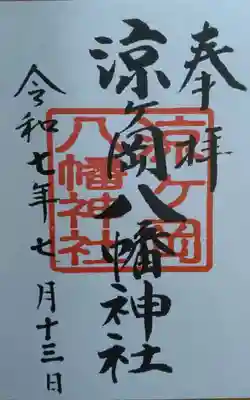 奉拝
涼ヶ岡八幡神社
涼ヶ岡
八幡神社
令和七年七月十三日